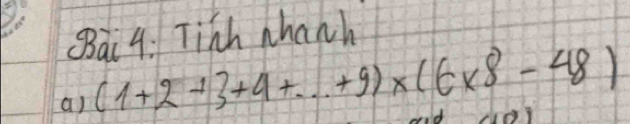 Bài 4: Tính nhanh
a) (1+2+3+4+...+9)×(6×8-48)